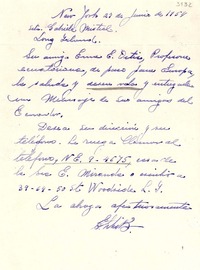 3132
New York 23 de Junio de 1954
Sta. Gabriela Mistral.
Long Island.
Su amiga Emma E. Ortiz, Profesora
ecuatoriana, de paso para Europa
la saluda y desea verla y entregarle
un Mensaje de sus amigos del
Ecuador.
Desea su dirección y su
teléfono. Le ruega llamar al
teléfono, N.E. 9-4575, casa de
la Sra E. Miranda o escribir a
39-69-50 St. Woodside L. I.
La abraza afectuosamente